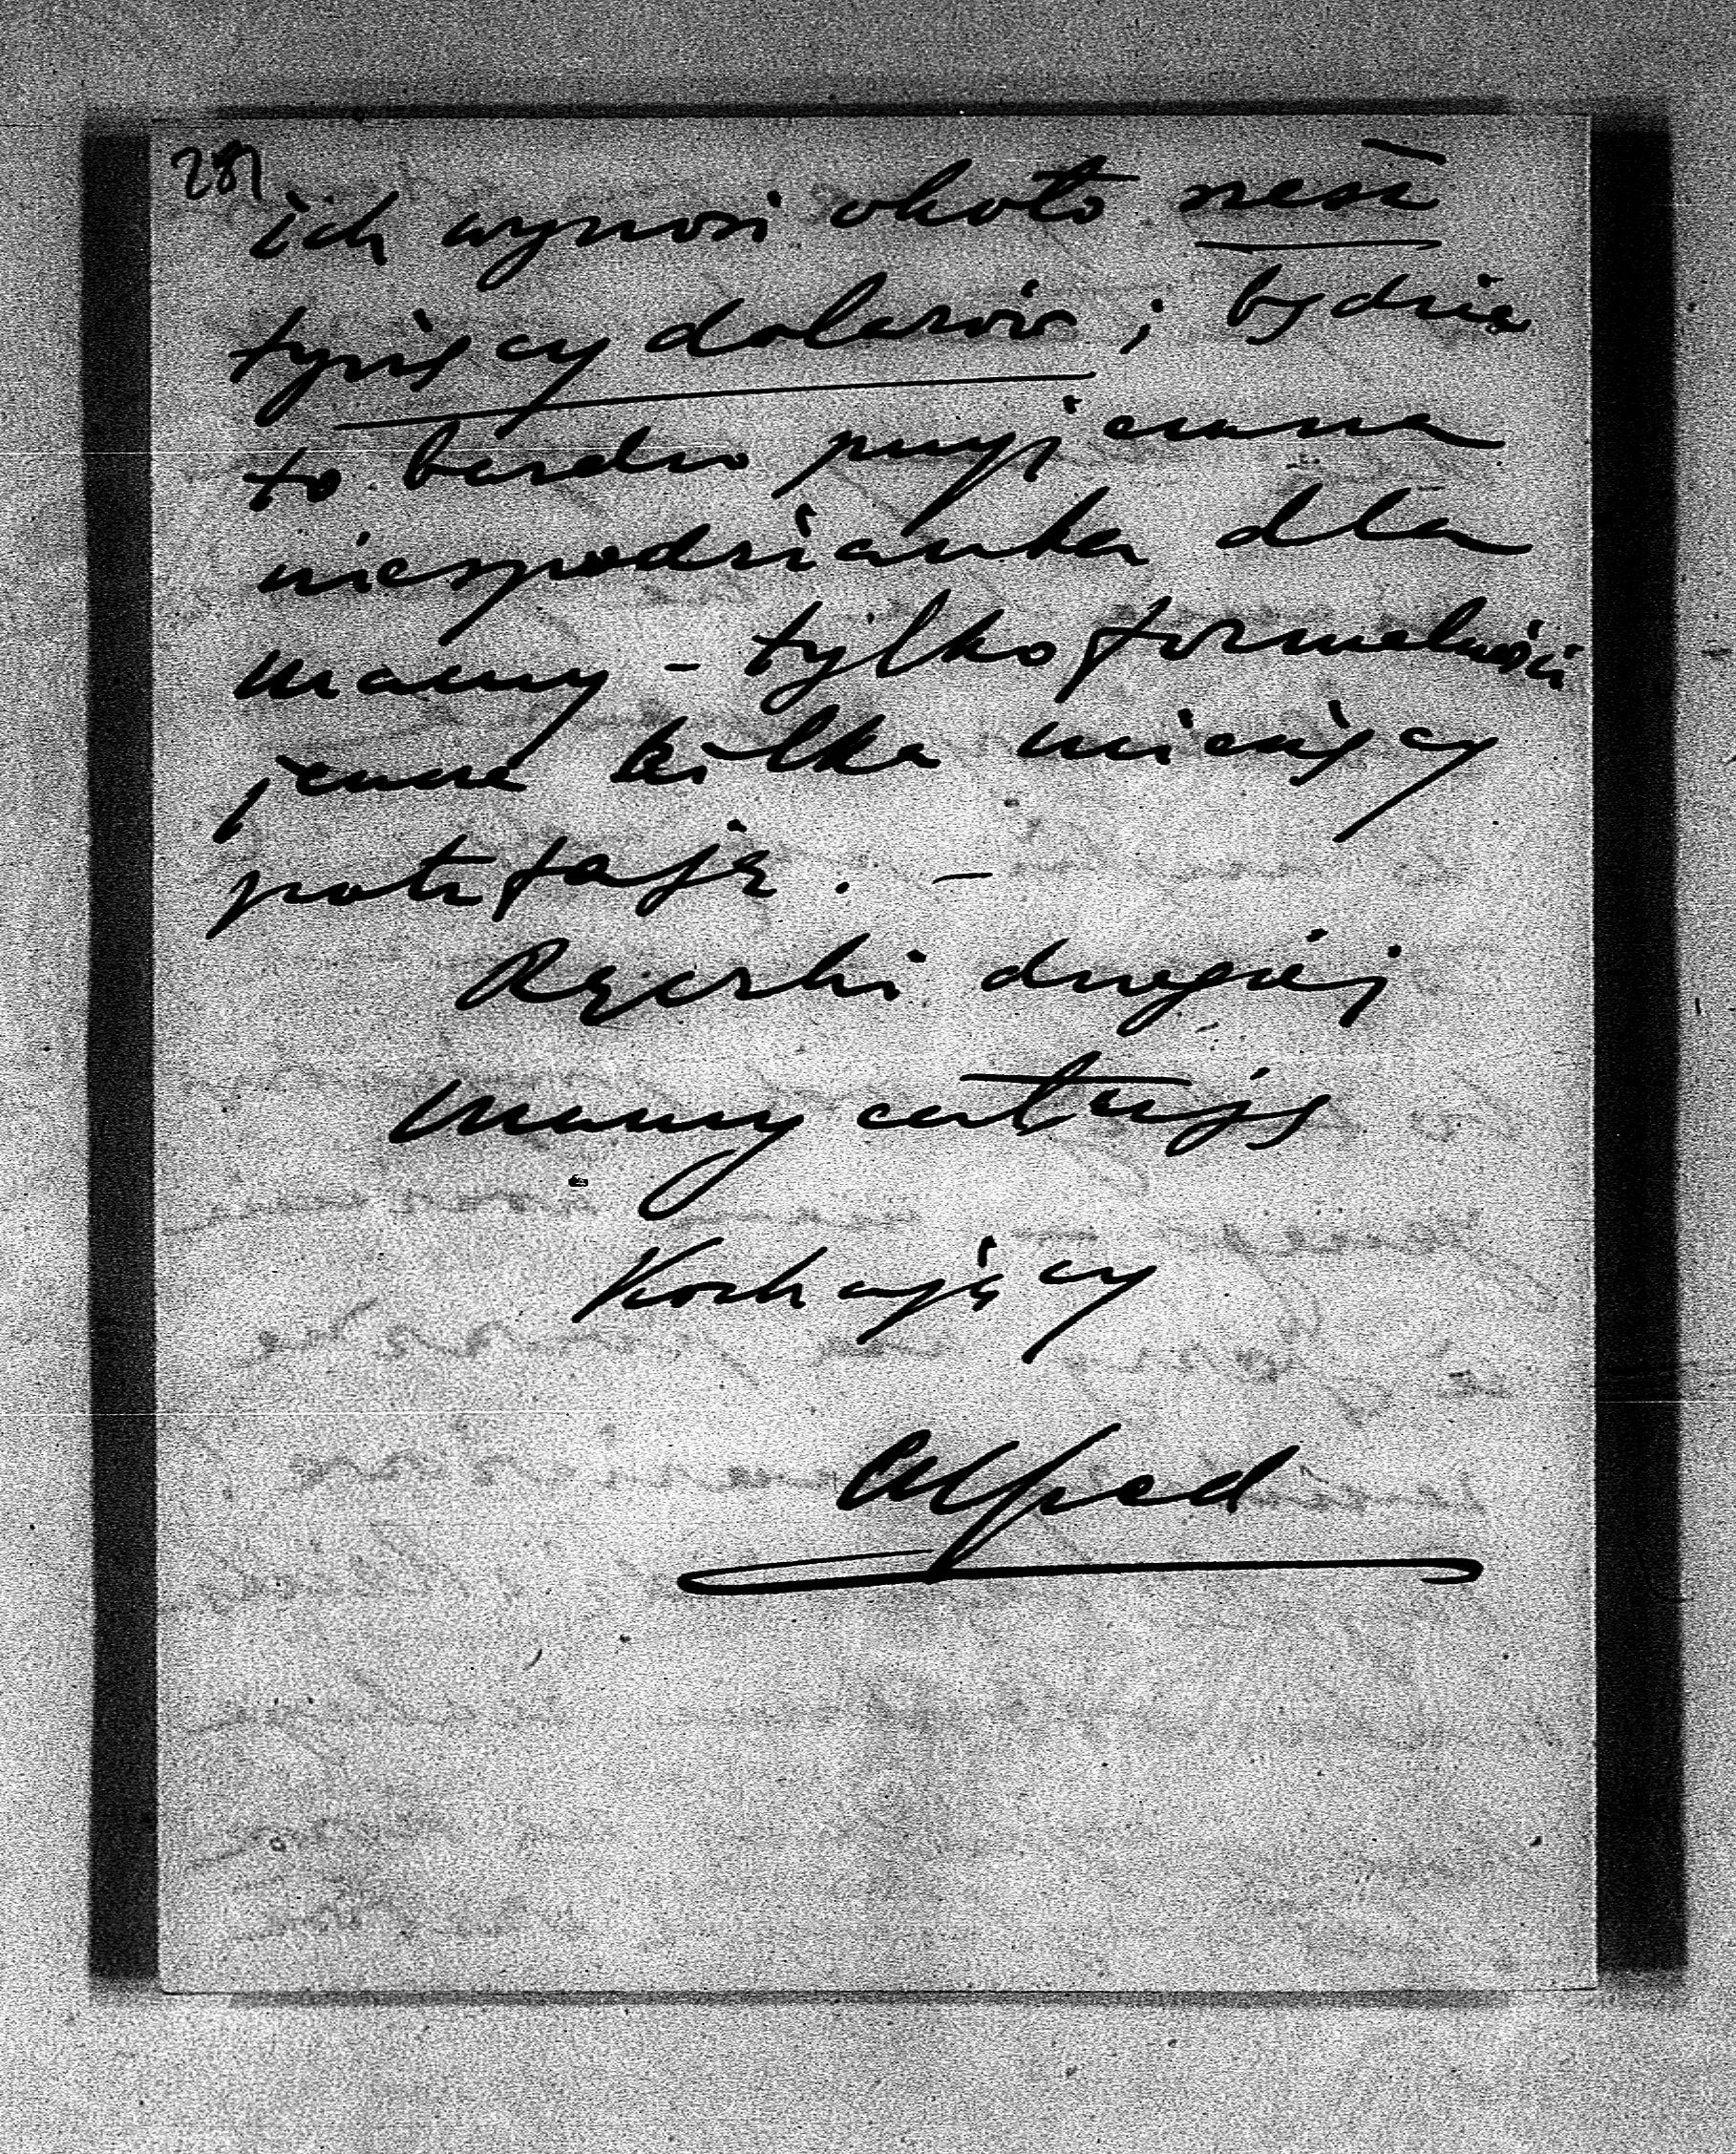 287
ich wynosi około sześć
tysięcy dolarów; będzie
to bardzo przyjemna
niespodzianka dla
mamy - tylko formalności
jeszcze kilka miesięcy
potrfają. —
Rączki drogiej
mamy całuję
Kochający
Alfred